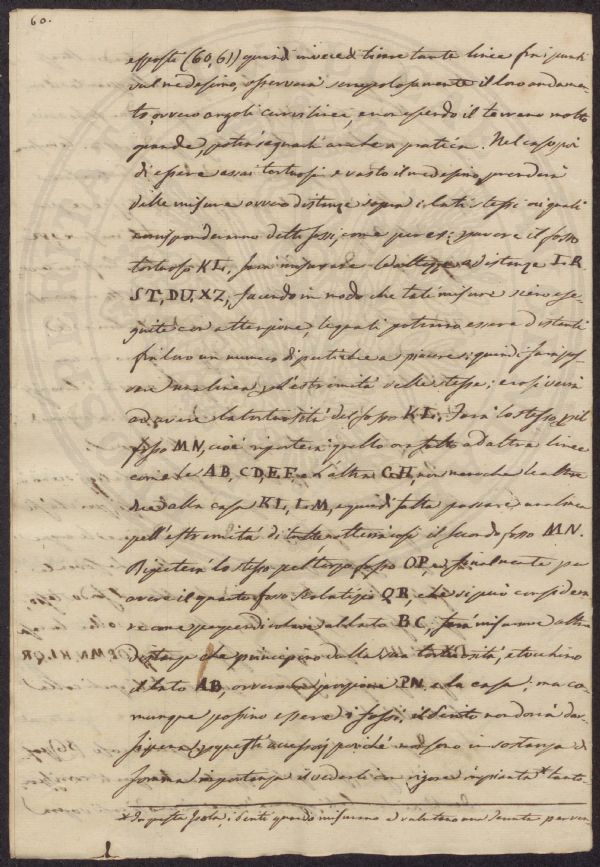 60.
esposti (60,61) quindi invece di tirare tante linee fra i punti
sul medesimo, osserverà scrupolosamente il loro andamen-
to, ovvero angoli curvilinei, e non essendo il terreno molto
grande, potrà segnarli anche a pratica. Nel caso poi
di essere assai tortuosi e vasto il medesimo, prenderà
delle misure ovvero distanze sopra i lati stessi ai quali
corrisponderanno detti fossi, come per es: per avere il fosso
tortuoso KL, farà misurare le distanze I.R
ST, DU, XZ, facendo in modo che tali misure sieno ese-
guite con attenzione, le quali potranno essere distanti
fra loro un numero di pertiche a piacere; quindi farà pas-
sare una linea per l'estremità delle stesse; e così verrà
ad avere la tortuosità del fosso KL. Farà lo stesso pel
fosso MN, cioè riporterà quello ad altre linee
come le AB, CD, EF, e l'altra GH, non meno che le altre
due dalla casa KL, LM, e quindi fatta passare una linea
per l'estremità di tutte otterrà così il secondo fosso MN.
Ripeterà lo stesso pel terzo fosso OP, e finalmente per
avere il quarto fosso QR, che si può considera-
re come perpendicolare al lato BC, farà misurare altre
distanze che principino dalla sua tortuosità, e tocchino
il lato AB, ovvero porzione PN, e la casa; ma co-
munque possino essere i fossi, il Perito non dovrà dar-
si pena per questi accessorj, poiché non sono in sostanza di
somma importanza il vederli con rigore in pianta* tanto
* In questa Isola, i Periti quando misurano e valutano una tenuta per ven-